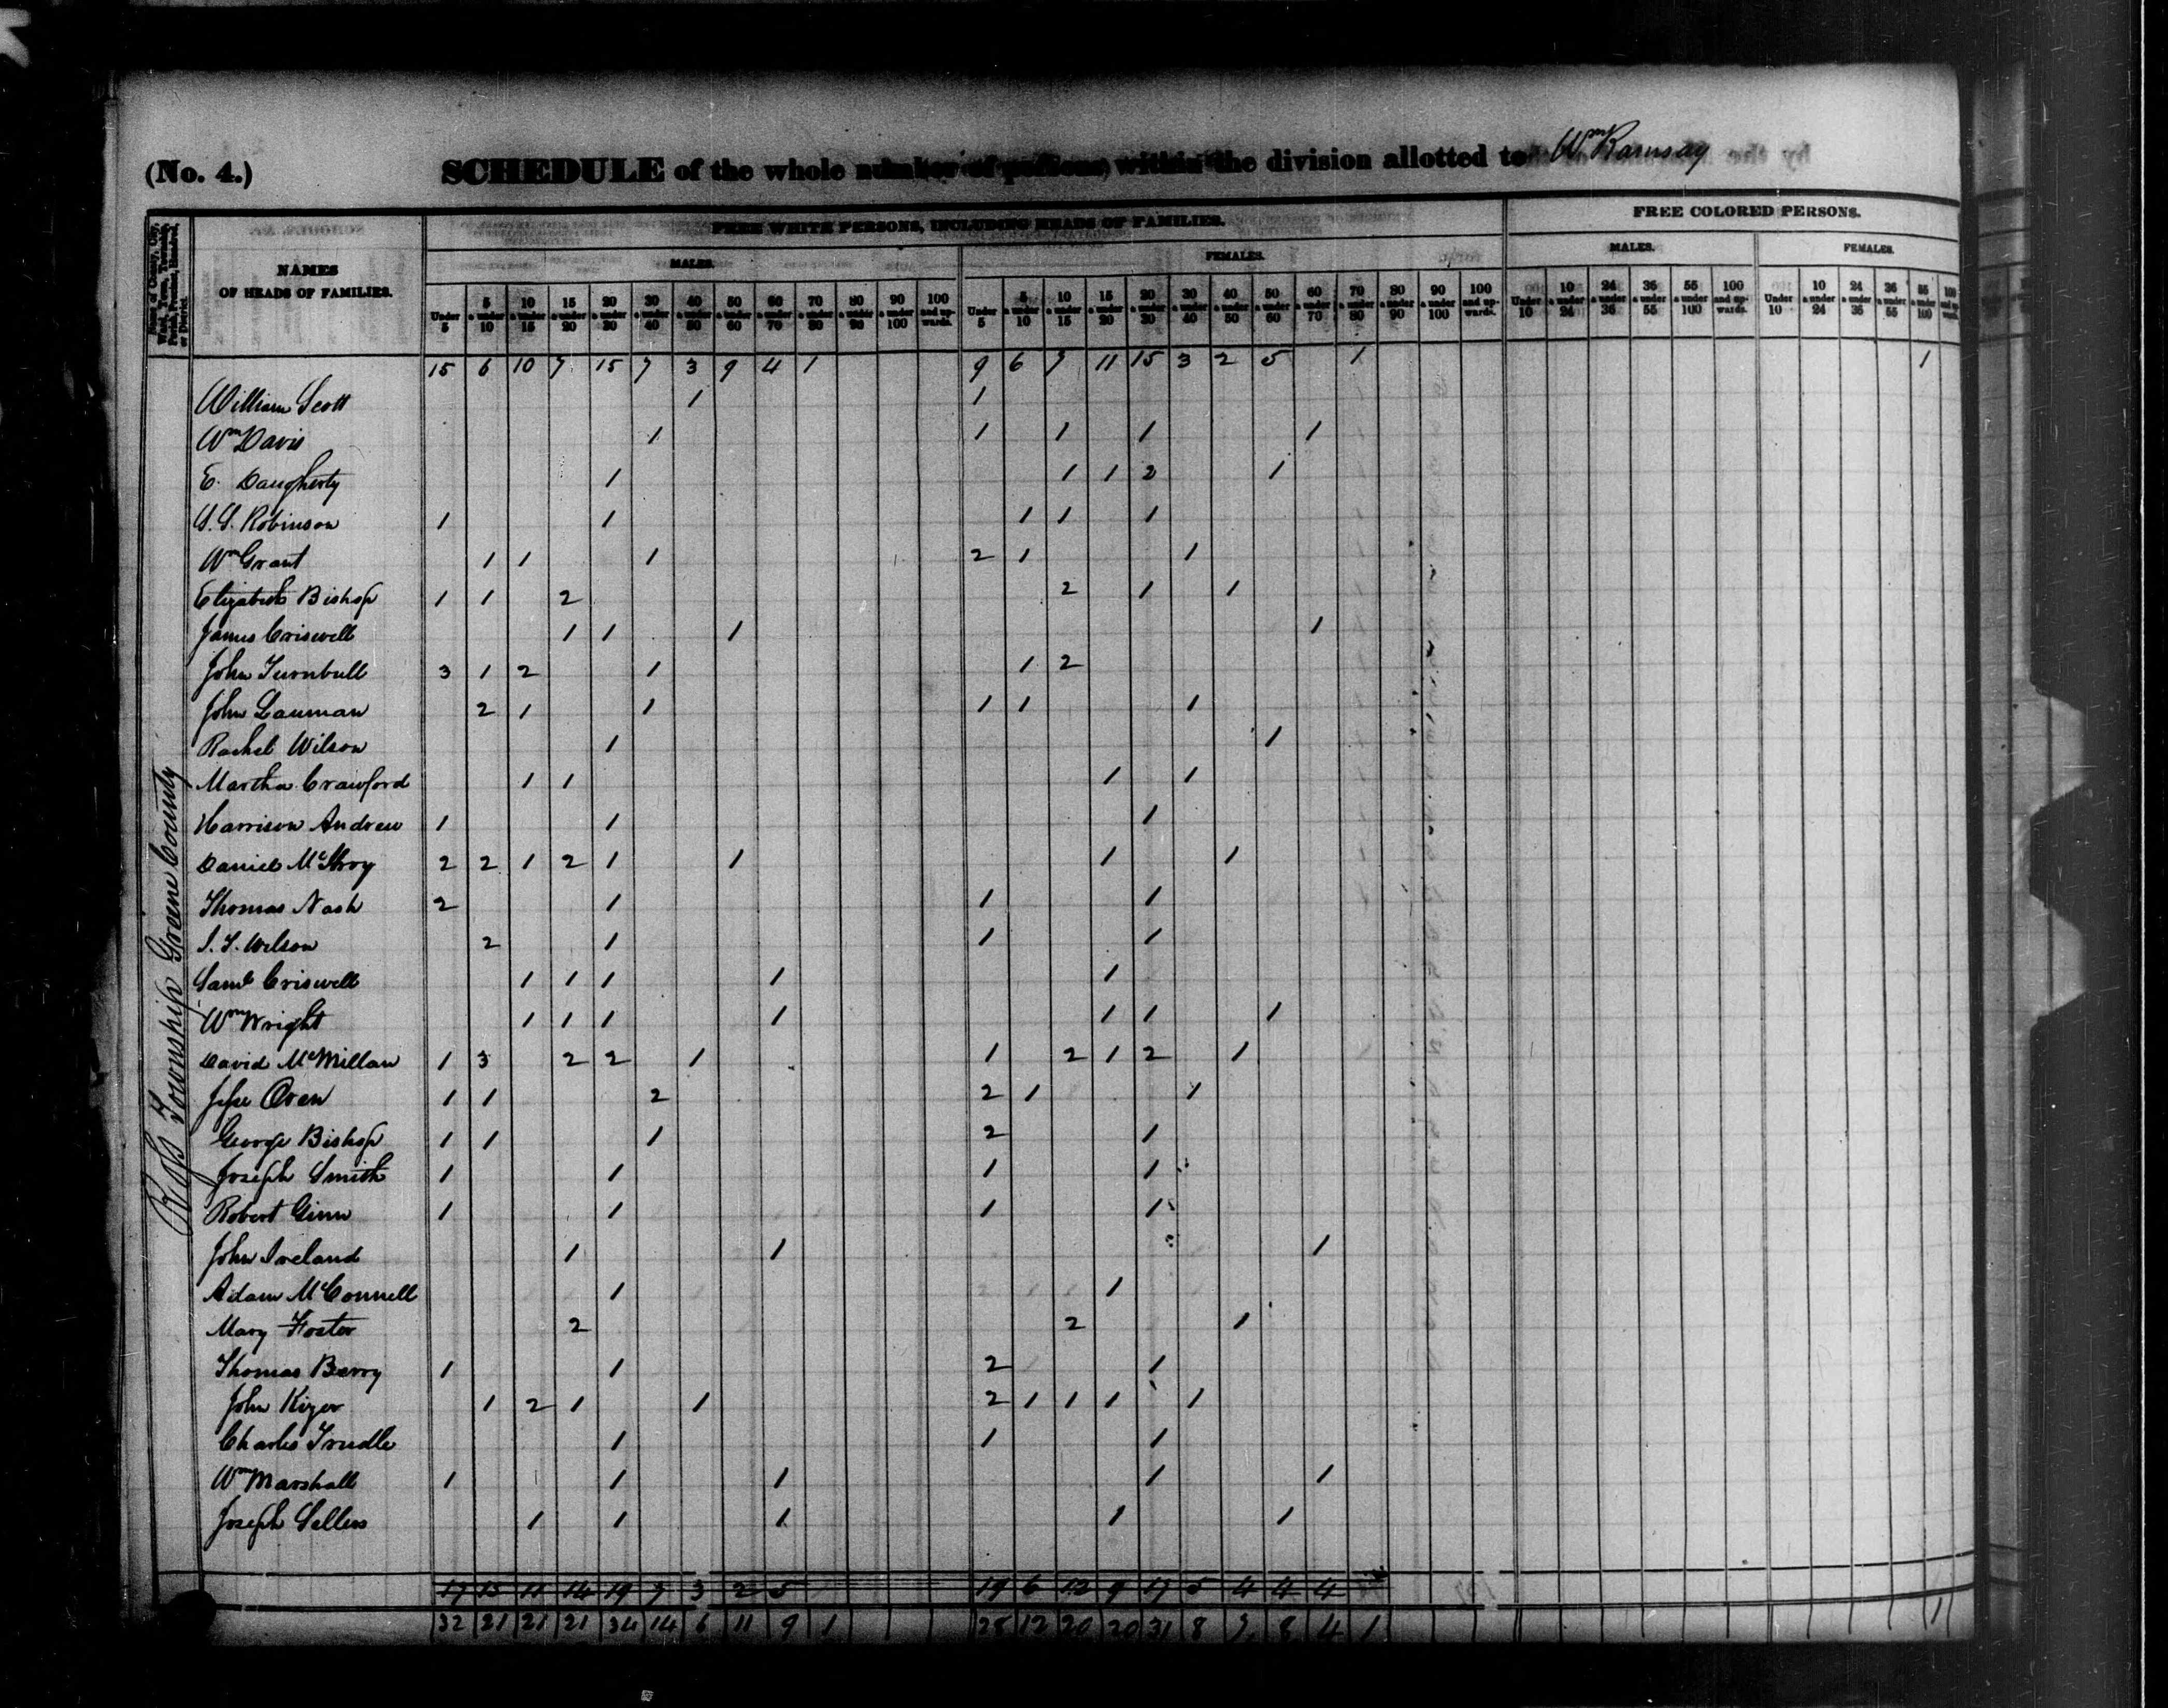 (No. 4.) SCHEDULE of the whole number of persons within the division allotted to Wm Ramsay
Name of County, City, Ward, Town, Township, Parish, Precinct, Hundred, or District.
NAMES OF HEADS OF FAMILIES.
FREE WHITE PERSONS, INCLUDING HEADS OF FAMILIES.
FREE COLORED PERSONS.
MALES. FEMALES. MALES. FEMALES.
Under 5 5 & under 10 10 & under 15 15 & under 20 20 & under 30 30 & under 40 40 & under 50 50 & under 60 60 & under 70 70 & under 80 80 & under 90 90 & under 100 100 and upwards. Under 5 5 & under 10 10 & under 15 15 & under 20 20 & under 30 30 & under 40 40 & under 50 50 & under 60 60 & under 70 70 & under 80 80 & under 90 90 & under 100 100 and upwards. Under 10 10 & under 24 24 & under 36 36 & under 55 55 & under 100 100 and upwards. Under 10 10 & under 24 24 & under 36 36 & under 55 55 & under 100 100 and upwards.
15 6 10 7 15 7 3 9 4 1 9 6 7 11 15 3 2 5 1 1
William Scott 1 1
Wm Davis 1 1 1 1 1
E. Daugherty 1 1 1 2 1
Robinson 1 1 1 1 1
Wm Grant 1 1 1 2 1 1
Elizabeth Bishop 1 1 2 2 1 1
James Criswell 1 1 1 1
John Turnbull 3 1 2 1 1 2
John Lauman 2 1 1 1 1 1
Rachel Wilson 1 1
Martha Crawford 1 1 1 1
Harrison Andrew 1 1 1
Daniel McIlroy 2 2 1 2 1 1 1 1
Thomas Nash 2 1 1 1
Wilson 2 1 1 1
Saml Criswell 1 1 1 1 1
Wm Wright 1 1 1 1 1 1 1
David McMillan 1 3 2 2 1 1 2 1 2 1
Jesse Oren 1 1 2 2 1 1
George Bishop 1 1 1 2 1
Joseph Smith 1 1 1 1
Robert Ginn 1 1 1 1
John Ireland 1 1 1
Adam McConnell 1 1
Mary Foster 2 2 1
Thomas Berry 1 1 2 1
John Kizer 1 2 1 1 2 1 1 1 1
Charles Trudle 1 1 1
Wm Marshall 1 1 1 1 1
Joseph Sellers 1 1 1 1 1
Ross Township Greene County
17 15 11 14 19 7 3 2 5 19 6 13 9 17 5 4 4 4
32 21 21 21 34 14 6 11 9 1 28 12 20 20 31 8 7 8 4 1 1